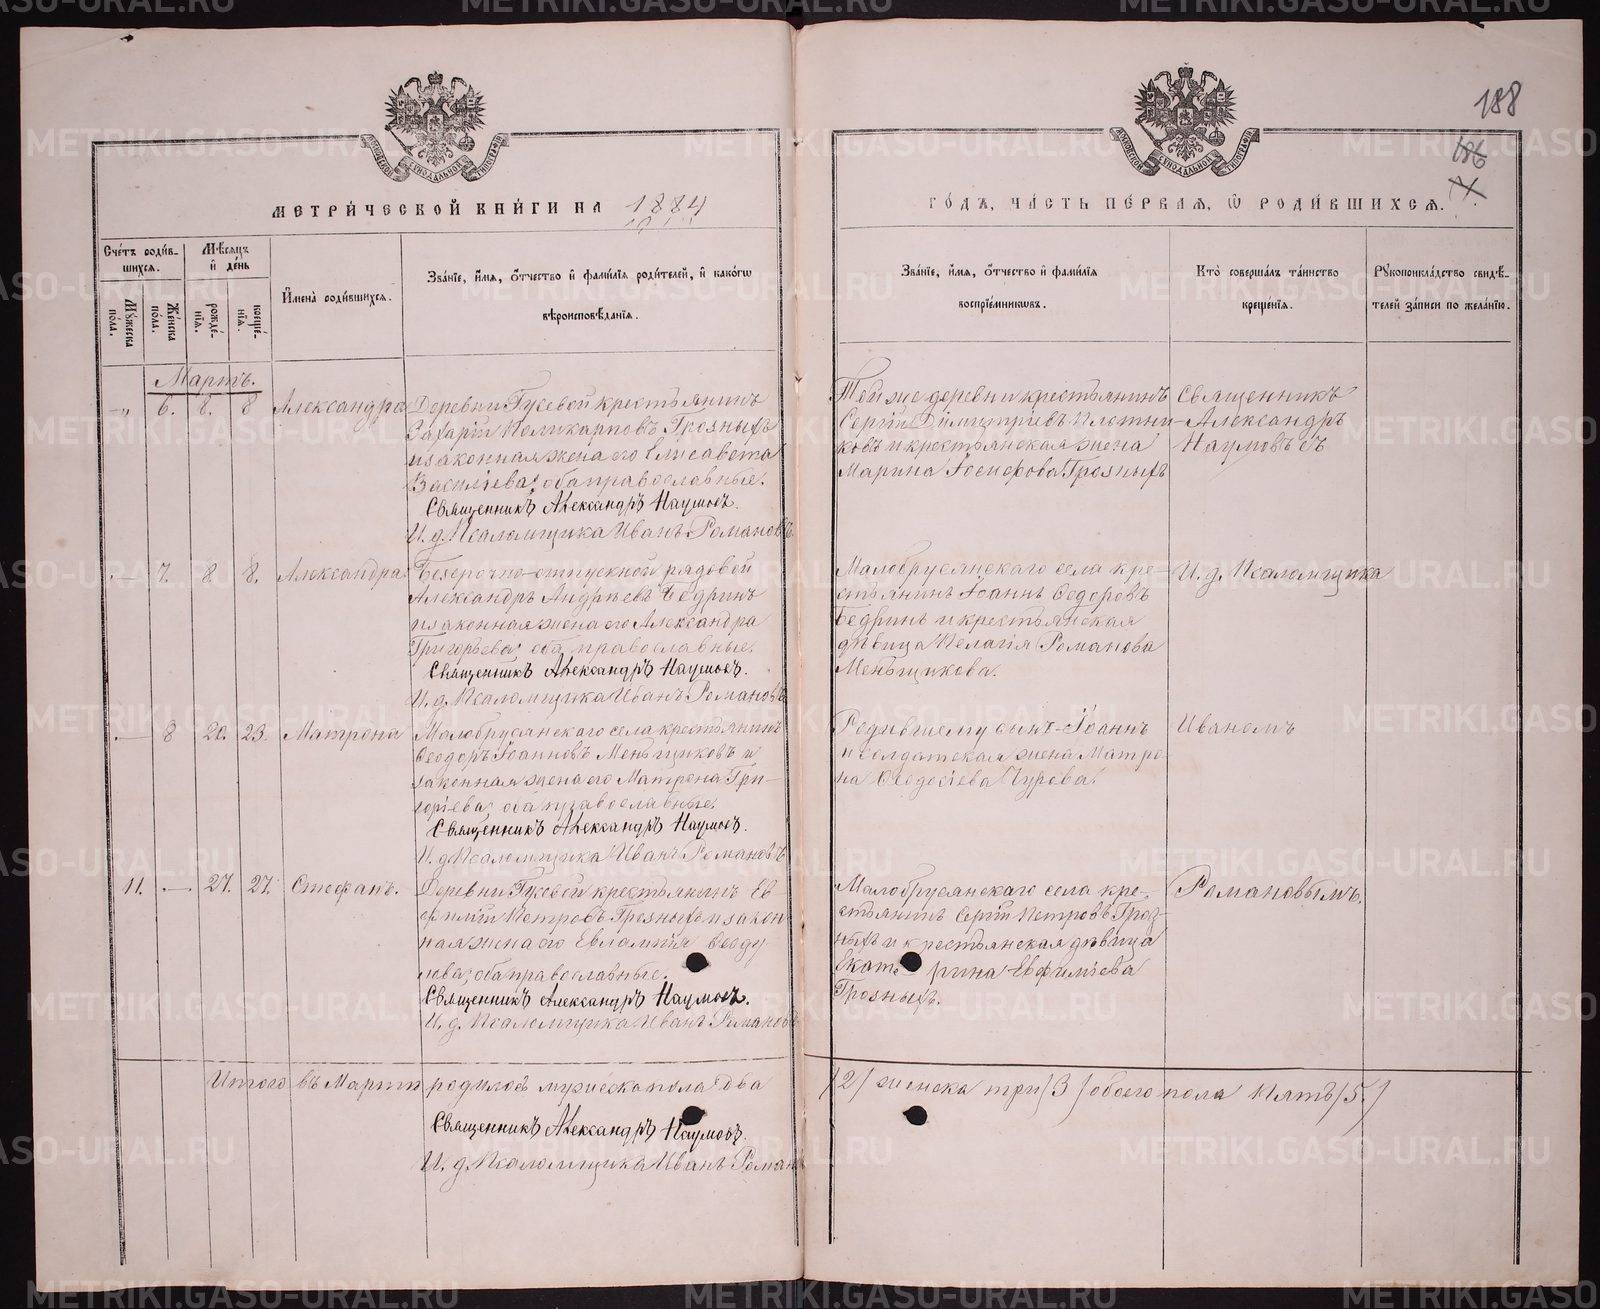 188
186
МОСКОВСКОЙ СѴНОДАЛЬНОЙ ТИПОГРАФІИ
МОСКОВСКОЙ СѴНОДАЛЬНОЙ ТИПОГРАФІИ
МЕТРИ́ЧЕСКОЙ КНИ́ГИ НА 1884
ГО́ДЪ, ЧА́СТЬ ПЕ́РВАЯ, Ѡ РОДИ́ВШИХСЯ.
Сче́тъ роди́в-
шихся.
Мѣ́сяцъ
и҆ де́нь
Мꙋ́жеска по́ла.
Же́нска по́ла.
рожде́-нїя.
креще́-нїя.
И҆мена̀ роди́вшихся.
Зва́нїе, и҆́мя, ѻ҆́тчество и҆ фами́лїя роди́телей, и҆ како́гѡ
вѣроисповѣ́данїя.
Зва́нїе, и҆́мя, ѻ҆́тчество и҆ фами́лїя
воспрїе́мниковъ.
Кто̀ соверша́лъ та́инство
креще́нїя.
Рꙋкоприкла́дство свидѣ́-
телей за́писи по жела́нїю.
Мартъ.
-„ 6. 8. 8 Александра
Деревни Гусевой крестьянинъ
Захарій Поликарповъ Грозныхъ
и законная жена его Елисавета
Васильева; оба православные.
Священникъ Александръ Наумовъ.
И. д. Псаломщика Иванъ Романовъ.
Той же деревни крестьянинъ
Сергій Димитріевъ Плотни-
ковъ и крестьянская жена
Марина Іосифова Грозныхъ
Священникъ
Александръ
Наумовъ съ
— 7. 8 8. Александра.
Безсрочно-отпускной рядовой
Александръ Андреевъ Бедринъ
и законная жена его Александра
Григорьева; оба православные.
Священникъ Александръ Наумовъ.
И. д. Псаломщика Иванъ Романовъ
Малобрусянскаго села кре-
стьянинъ Іоаннъ Ѳедоровъ
Бедринъ и крестьянская
дѣвица Пелагія Романова
Меньщикова.
И. д. Псаломщика
— 8 20. 23. Матрона
Малобрусянскаго села крестьянинъ
Ѳеодоръ Іоанновъ Меньщиковъ и
законная жена его Матрона Гри-
горіева; оба православные.
Священникъ Александръ Наумовъ.
И. д. Псаломщика Иванъ Романовъ
Родившему сынъ Іоаннъ
и солдатская жена Матро-
на Ѳеодосіева Чурова.
Иваномъ
11. — 27. 27. Стефанъ.
Деревни Гусевой крестьянинъ Ев-
фимій Петровъ Грозныхъ и закон-
ная жена его Евлампія Ѳеоду
лова; оба православные.
Священникъ Александръ Наумовъ.
И. д. Псаломщика Иванъ Романовъ
Малобрусянскаго села кре-
стьянинъ Сергій Петровъ Гроз-
ныхъ и крестьянская дѣвица
Екатерина Евфиміева
Грозныхъ.
Романовымъ.
Итого въ Мартѣ родилось мужеска пола два /2/ женска три /3/ обоего пола пять /5./
Священникъ Александръ Наумовъ.
И. д. Псаломщика Иванъ Роман
METRIKI.GASO-URAL.RU